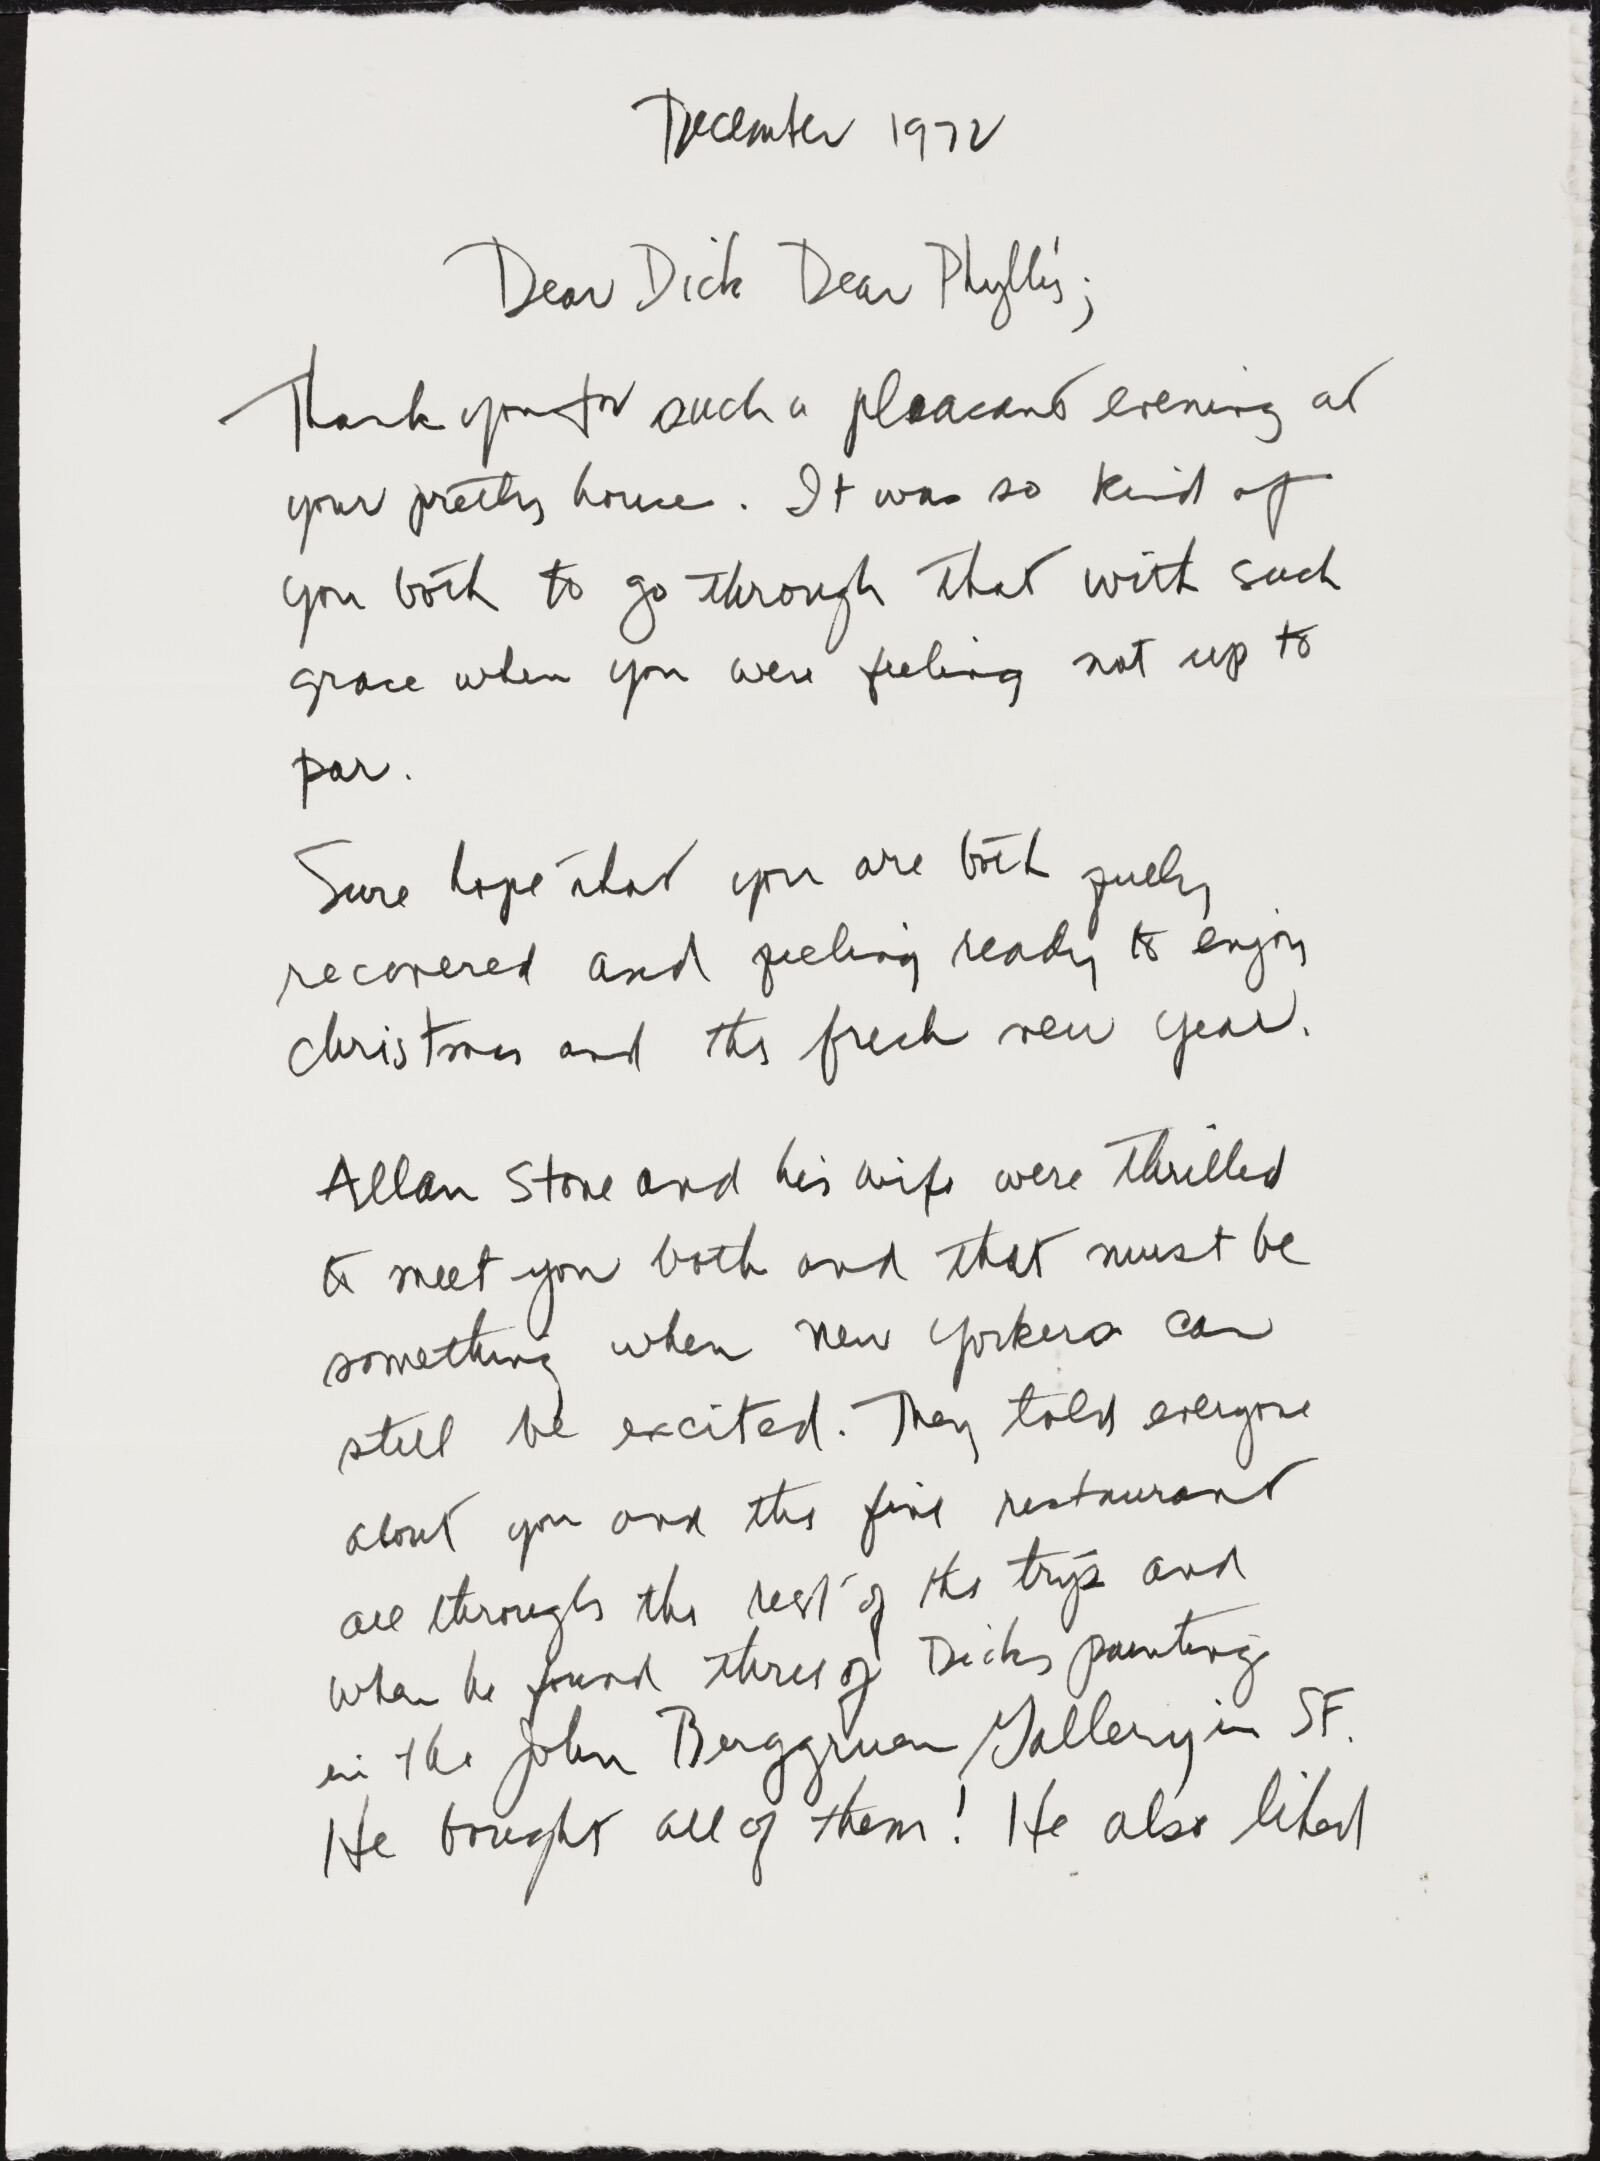 December 1972
Dear Dick Dear Phyllis;
Thank you for such a pleasant evening at
your pretty house. It was so kind of
you both to go through that with such
grace when you were feeling not up to
par.
Sure hope that you are both fully
recovered and feeling ready to enjoy
christmas and the fresh new year.
Allan Stone and his wife were thrilled
to meet you both and that must be
something when new yorkers can
still be excited. They told everyone
about you and the fine restaurant
all through the rest of the trip and
when he found three of Dicks paintings
in the John Berggruen Gallery in SF.
He bought all of them! He also liked